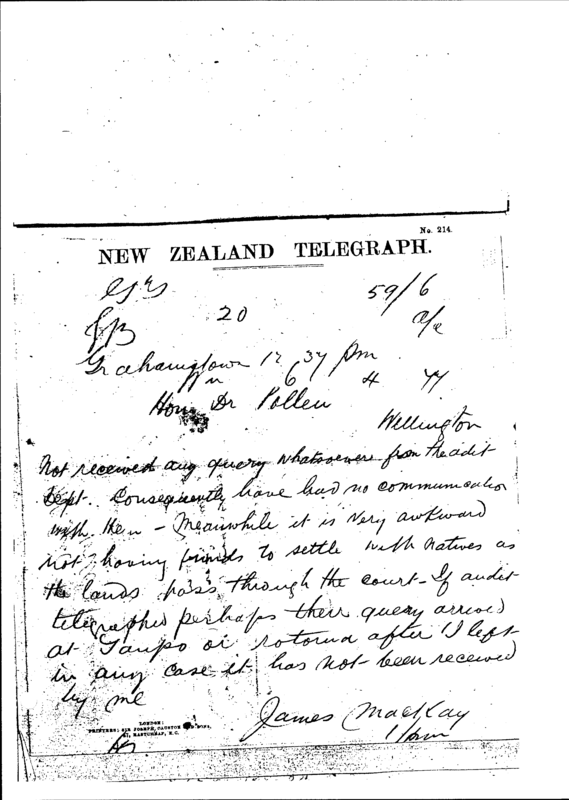 No. 214.
NEW ZEALAND TELEGRAPH.
20 59/6
Grahamstown 12 37 pm
6 4 77
Hon Dr Pollen
Wellington
Not received any query whatsoever from the adit
Dept. Consequently have had no communication
with them - Meanwhile it is very awkward
not having funds to settle with natives as
the lands pass through the court - If audit
telegraphed perhaps their query arrived
at Taupo or rotorua after I left
in any case it has not been received
by me
James Mackay
LONDON:
PRINTERS: SIR JOSEPH CAUSTON & SONS,
EASTCHEAP, E.C.